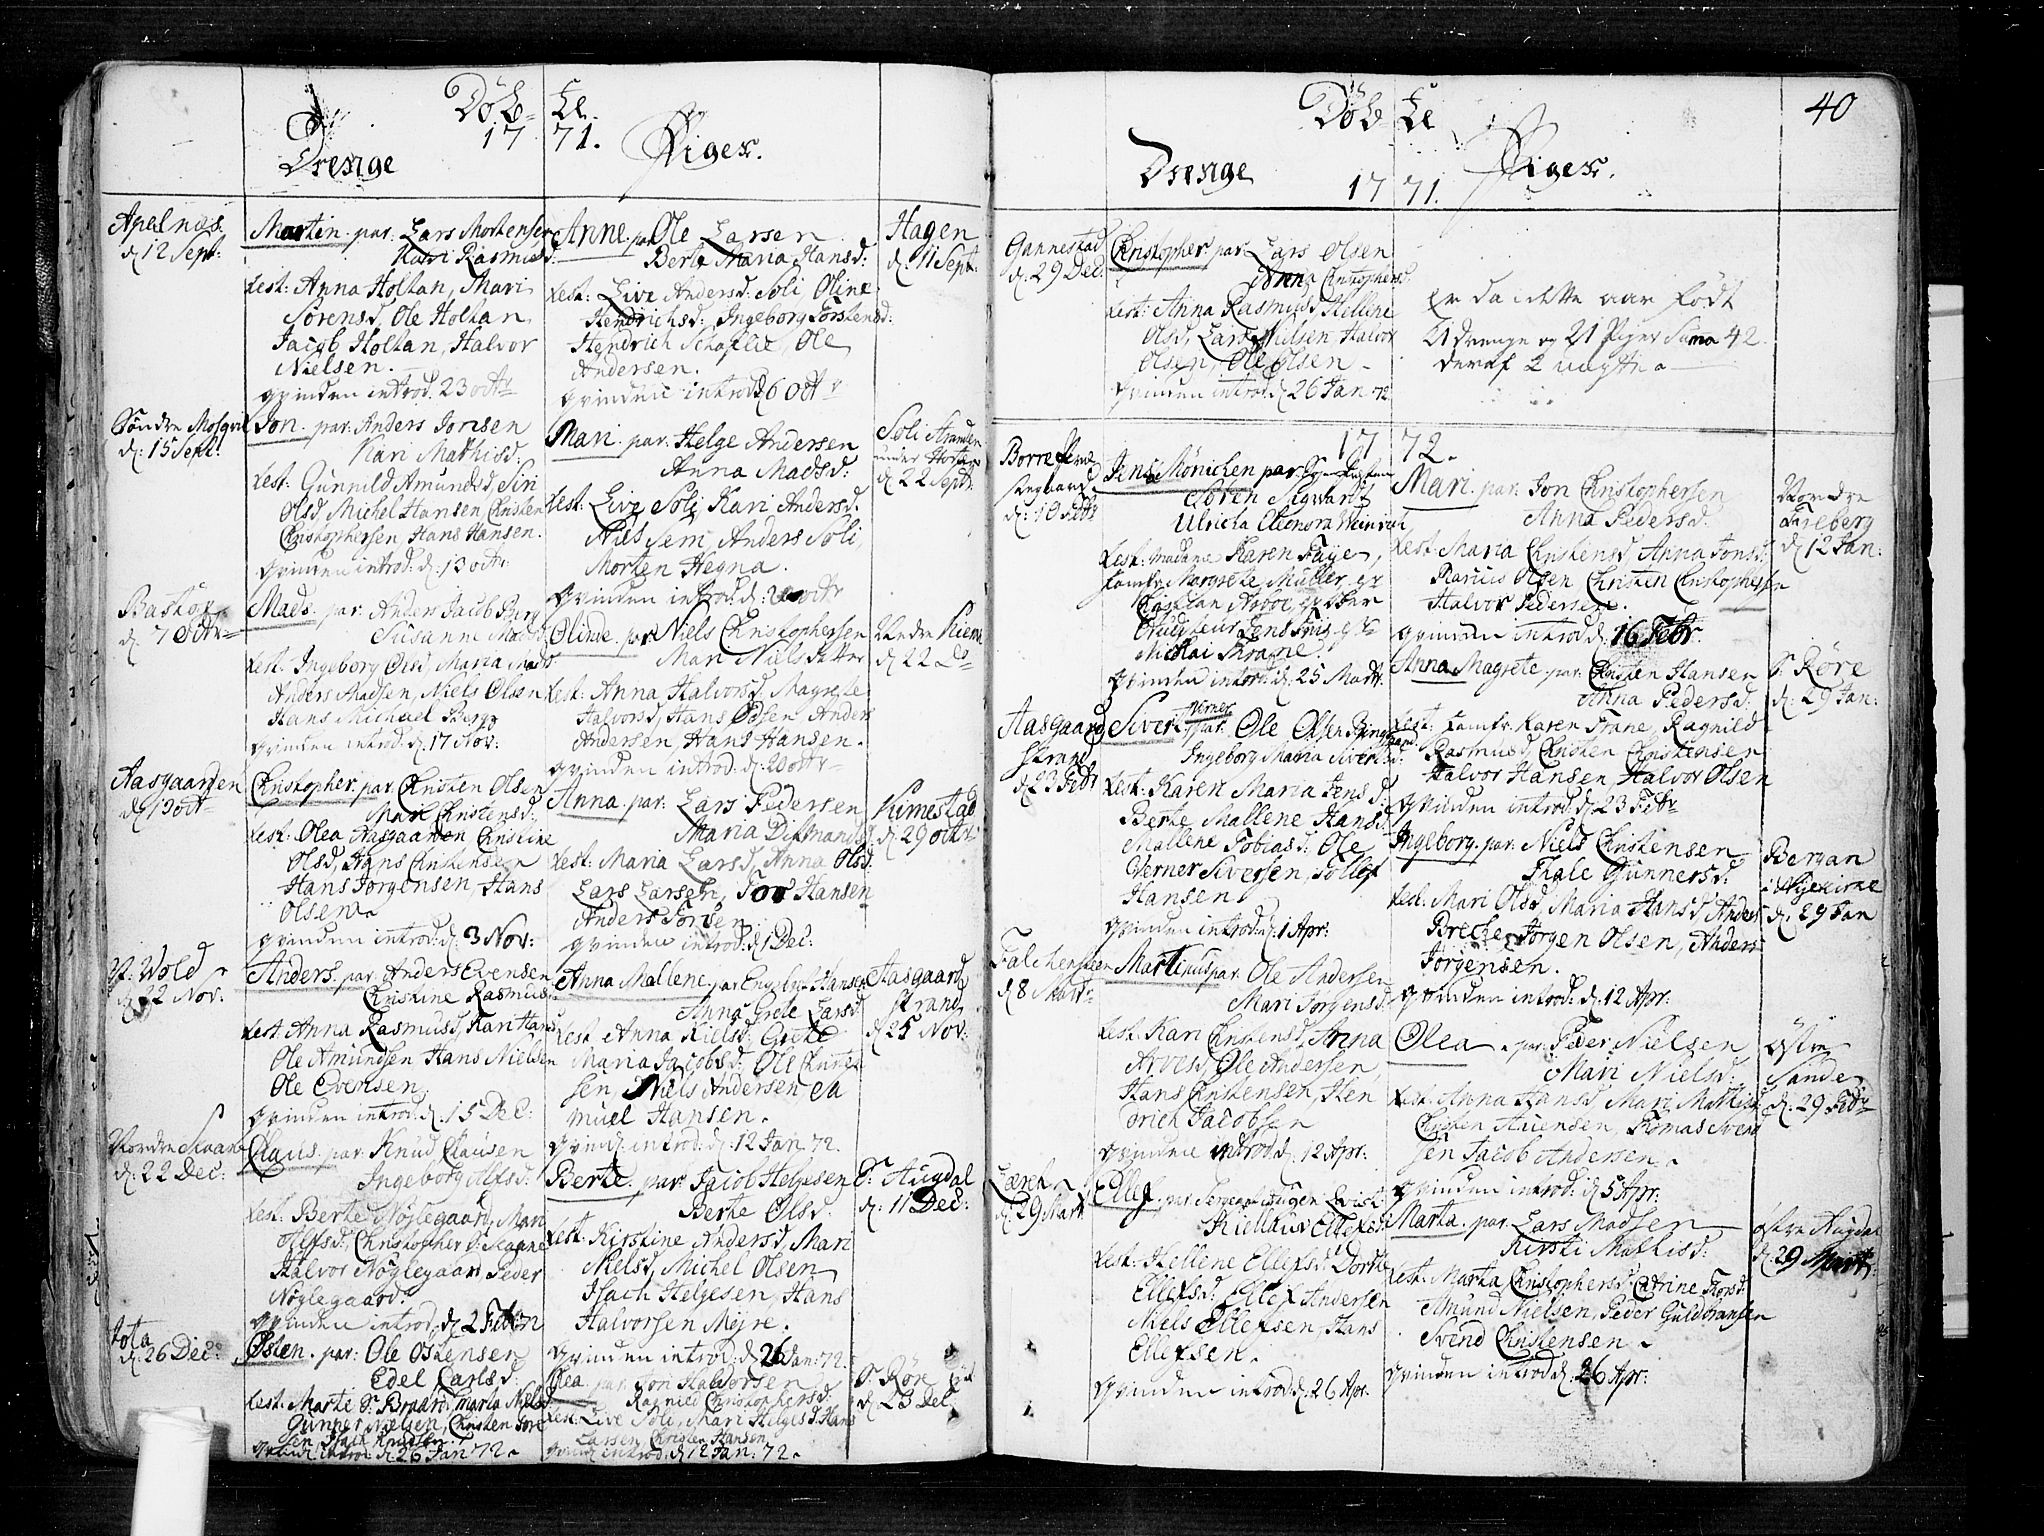 Døb- te.
17 71.
Drenge
Piger.
Apelnæs
d: 12 Sept:
Martin par: Lars Mortensen
Kari Rasmusd:
test: Anna Holtan, Mari
Sørensd, Ole Holtan
Jacob Holtan, Halvor
Nielsen.
qvinden introd. 23 octr
Søndre Mosqvil
d: 15 Sept:
Jon. par: Anders Jonsen
Kari Mathisd:
test: Gunnild Amundsd, Siri
Olsd Michel Hansen Christen
Christophersen, Hans Hansen.
qvinden introd: d: 13 octr:
d: 7 octr
Mads. par: Anders Jacob Berg
Susanne Madsd
test: Ingeborg Olsd, Maria Madsd
Anders Madsen, Niels Olsen
Hans Michael Berg
qvinden introd: d: 17 Nov:
Aasgaarden
d: 13 octr
Christopher. par: Christen Olsen
Mari Christensd:
test: Olea Aasgaarden Christine
Olsd, Hans Christensen
Hans Jørgensen, Hans
Olsen
qvinden introd: d: 3 Nov:
N: Wold
d: 22 Nov:
Anders. par: Anders Evensen
Christine Rasmusd:
test: Anna Rasmusd, Kari Hansd
Ole Amundsen Hans Nielsen
Ole Evensen
qvinden introd: d: 15 Dec:
Nordre Skaane
d: 22 Dec:
Claus. par: Knud Clausen
Ingeborg Olfsd:
test: Berte Nøglegaard, Mari
Olfsd, Christopher S: Skaane
Halvor Nøglegaard, Peder
Nøglegaard.
qvinden introd: d: 2 Febr 72
d: 26 Dec:
Østen. par: Ole Østensen
Edel Carlsd:
test: Marte S: Braard, Marta Nielsd
Gunner Nielsen, Christen Søre
sen Isach Knudsen.
qvind: introd: d: 26 Jan 72
Anne. par: Ole Larsen
Berte Maria Hansd:
test: Live Andersd: Soli, Oline
Hendrichsd: Ingeborg Torstensd:
Hendrich Schaflie, Ole
Andersen.
qvinden introd: d: 6 octr
Hagen
d: 11 Sept:
Mari. par: Helge Andersen
Anna Madsd:
test: Live Soli, Kari Andersd.
Niels Sem, Anders Soli,
Morten Hegna.
qvinden introd: d: 20 octr
Soli Stranden
under Horten
d: 22 Sept:
Olinde. par: Niels Christophersen
Mari Nielsdatter
test: Anna Halvorsd, Magrete
Halvorsd, Hans Olsen, Anders
Andersen, Hans Hansen.
qvinden introd: d: 20 octr
d: 22 do
Anna. par: Lars Pedersen
Maria Ditmansd:
test: Maria Larsd, Anna Olsd
Lars Larsen, Tov Hansen
Anders Torsen
qvinden introd: d: 1 Dec:
Kimestad
d: 29 octr
Anna Mallene. par: Engebret Hansen
Anna Grete Larsd:
test: Anna Nielsd: Grete
Maria Jacobsd: Ole Christen
sen, Niels Andersen, Sa
muel Hansen.
qvind: introd: d: 12 Jan 72.
Aasgaard
strand
d: 25 Nov:
Berte. par: Jacob Helgesen
Berte Olsd.
test: Kirstine Andersd, Mari
Nielsd, Michel Olsen
Isach Helgesen, Hans
Halvorsen Mejre.
qvinden introd: d: 26 Jan: 72
S: Augdal
d: 11 Dec:
Thea par: Jon Halvorsen
Ragnild Christophersd:
test: Live Soli, Mari Helgesd: Hans
Larsen, Christen Hansen
qvind: introd: d: 12 Jan: 72.
S: Røre
d: 23 Dec:
40
Døb- te
Drenge
17 71.
Piger.
Gannestad
d: 29 Dec:
Christopher. par: Lars Olsen
Anna Christophersd:
test: Anna Rasmusd, Hellene
Olsd, Lars Nielsen, Halvor
Olsen, Ole Olsen
qvinden introd: d: 26 Jan 72
Er da dette aar født
21 drenge og 21 Piger Suma 42.
deraf 2 uægte
17 72.
Borre Præ
stegaard
Jens Mönichen par:
Søren Sigvart
Ulricha Eleonora Weinrich
test: Madame Karen Faye,
Jomfr: Margrete Müller,
Christian
Jens Friis
Nicolai
qvinden introd: d: 25 Marti.
Aasgaard
strand
d: 23 Febr
Siver Verner par: Ole Olsen
Ingeborg Maria Sivertsd:
test: Karen Maria Jensd:
Berte Mallene Hansd
Mallene Tobiasd: Ole
Verner Siversen, Tollef
Hansen.
qvinden introd: d: 1 Apr:
Falchensteen
d: 8 Mart:
Martinus par: Ole Andersen
Mari Jørgensd.
test: Kari Christensd, Anna
Arvesd, Ole Andersen
Hans Christensen, Hen
drich Jacobsen
qvinden introd: d: 12 Apr:
d: 29 Mart:
Ellef. par:
test: Hellene Ellefsd: Dorthe
Ellefsd: Ellef Andersen
Niels Ellefsen, Hans
Ellefsen.
qvinden introd: d: 26 Apr.
Mari. par: Jon Christophersen
Anna Pedersd.
test: Maria Christensd, Anna Jonsd:
Marius Olsen Christen Christophersen
Halvor Pedersen.
qvinden introd: d: 16 Febr.
Nordre
Fægeberg
d: 12 Jan:
Anna Magrete. par: Christen Hansen
Anna Pedersd.
test: Jomfr: Karen Trane, Ragnild
Rasmusd, Christen Christensen
Halvor Hansen, Halvor Olsen
qvinden introd: d: 23 Febr
S: Røre
d: 29 Jan:
Ingeborg. par: Niels Christensen
Thale Gunnersd:
test: Mari Olsd, Maria Hansd, Anders
Brecke, Jørgen Olsen, Anders
Jørgensen.
qvinden introd: d: 12 Apr:
Bergan
i Nykirke
d: 29 Jan
Olea. par: Peder Nielsen
Mari Nielsd:
test: Anna Hansd, Mari Mathisd
Christen Auensen, Tomas Svend
sen Jacob Andersen.
qvinden introd: d: 5 Apr:
Østre
Sande
d: 29 Febr
Marta. par: Lars Madsen
Kirsti Mathisd:
test: Marta Christophersd Catrine Torsd:
Amund Nielsen, Peder Guldbransen
Svend Christensen.
qvinden introd: d: 26 Apr:
østre Augdal
d: 29 Mart: